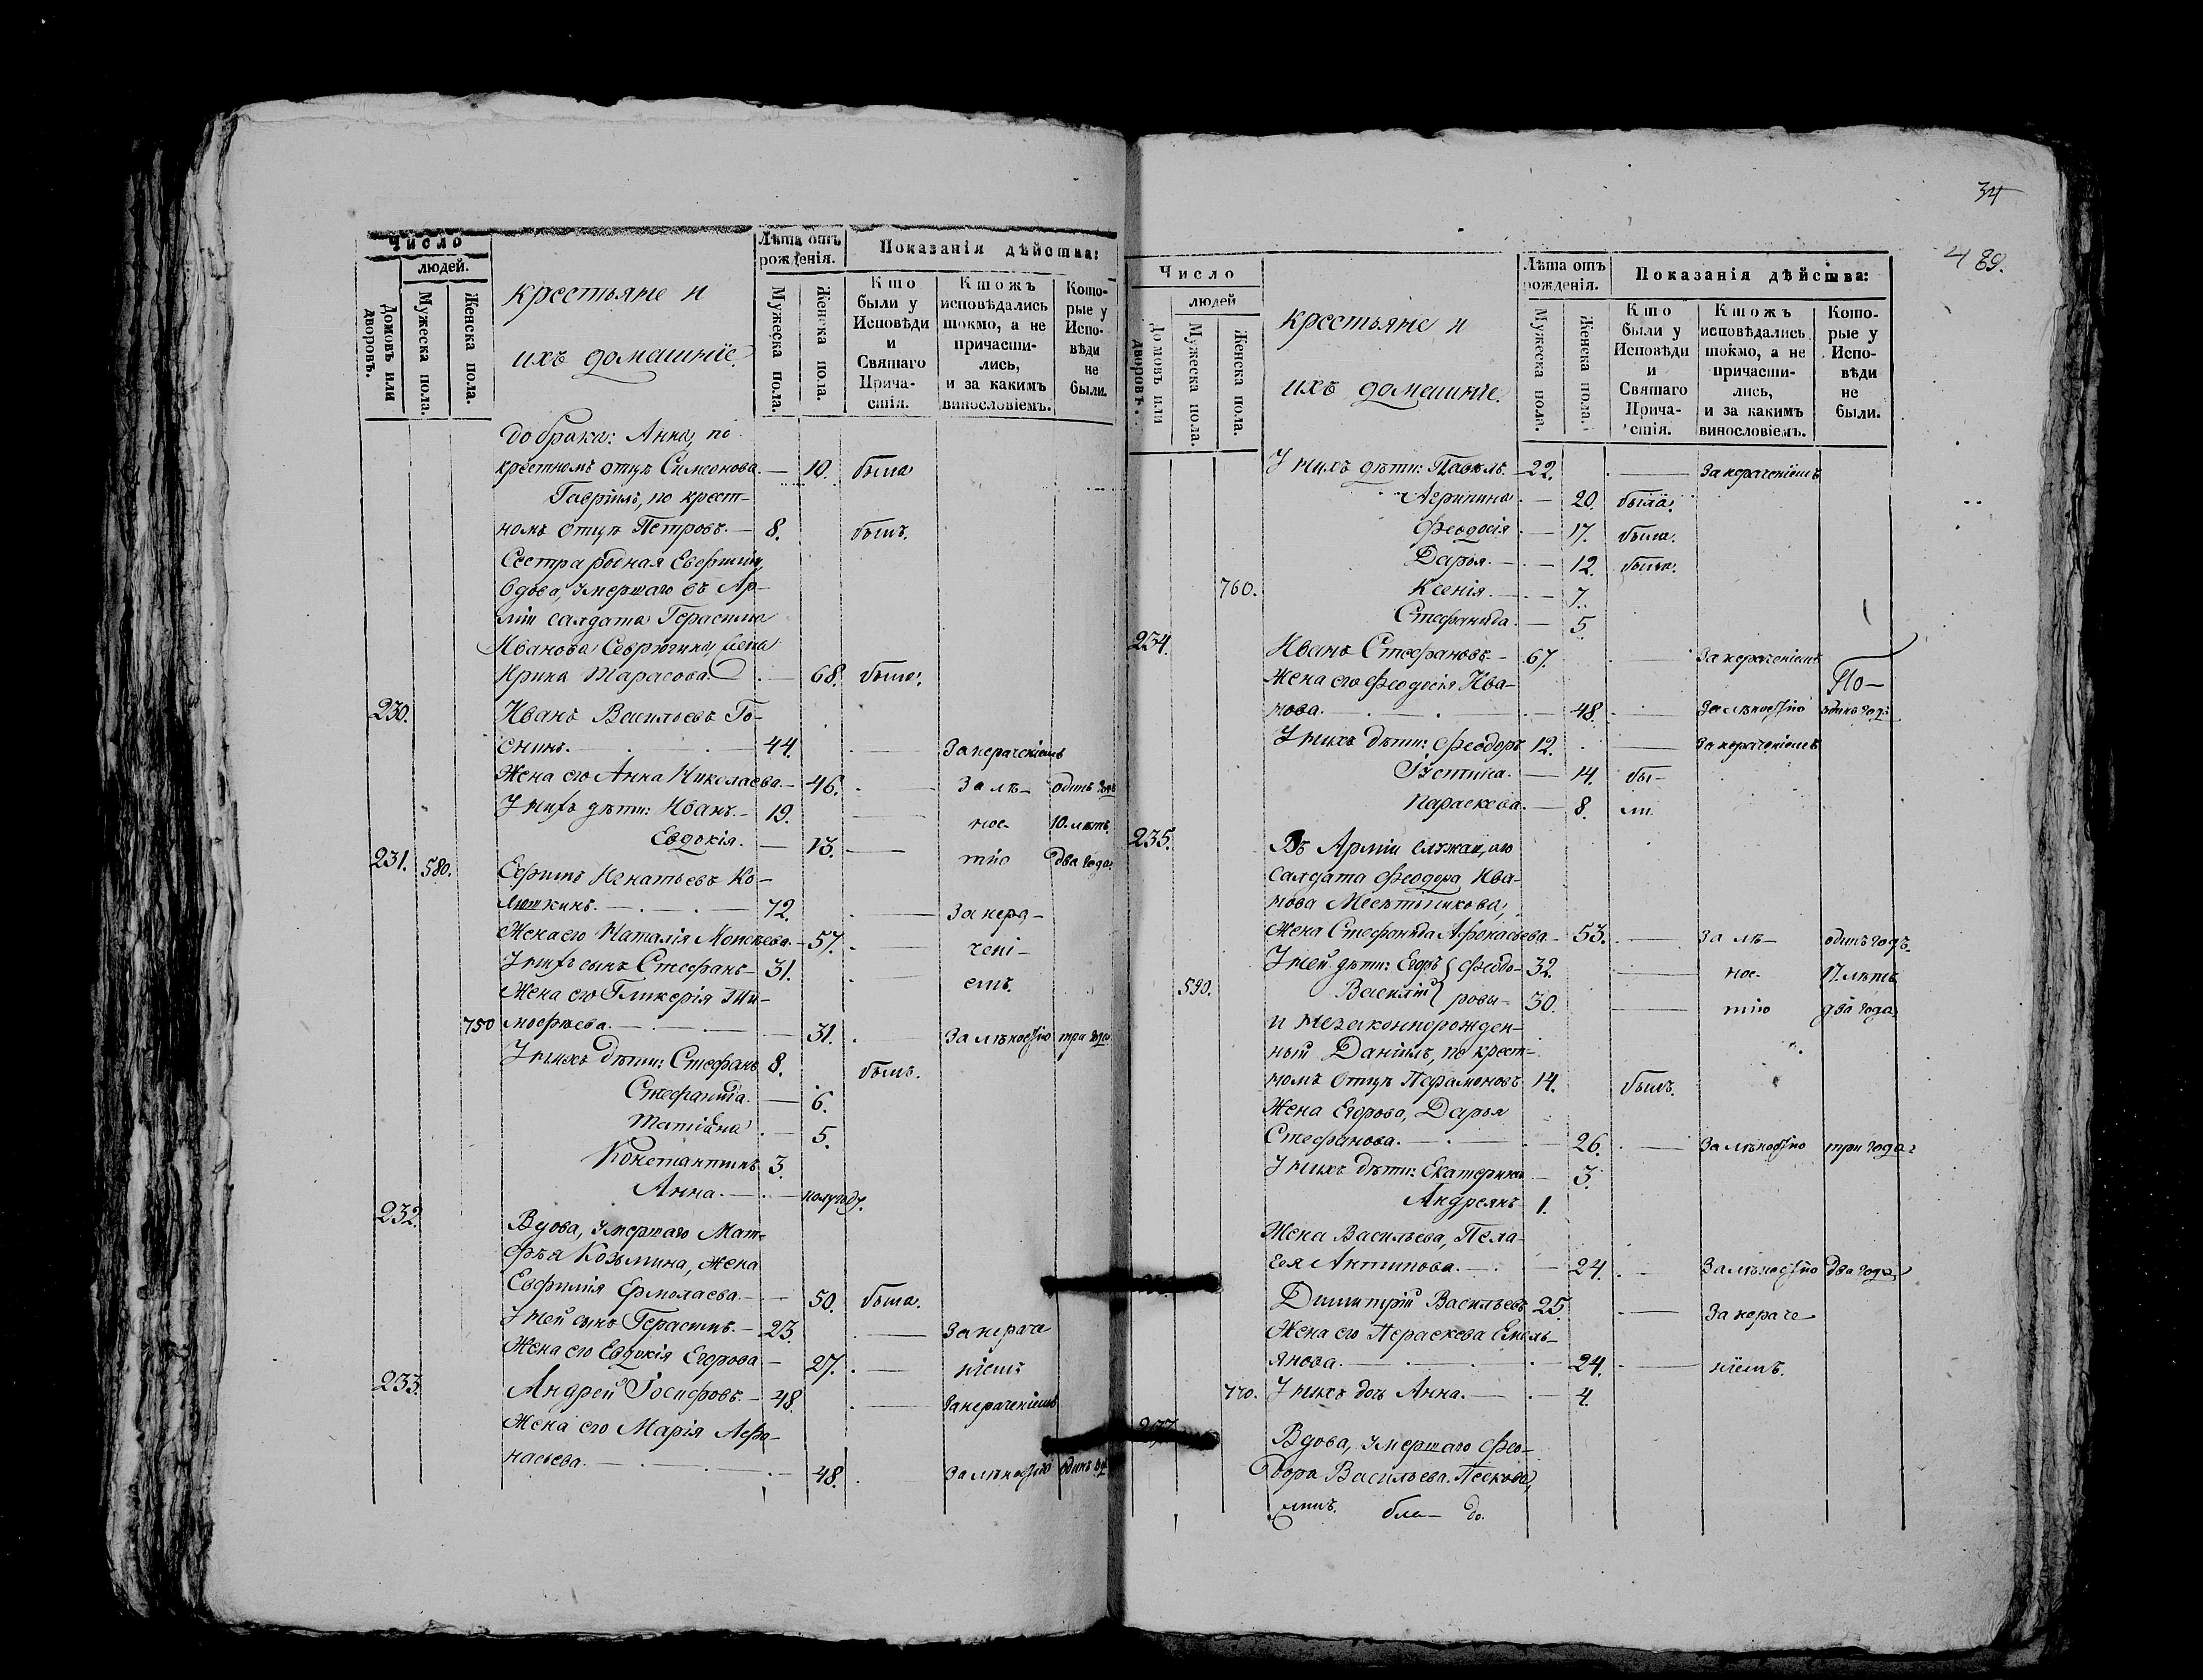 Число
людей.
Домовъ или дворовъ.
Мужеска пола.
Женска пола.
крестьяне и
ихъ домашніе.
Лѣта отъ рожденія.
Мужеска пола.
Женска пола.
Показанія дѣйства:
Кто были у Исповѣди и Святаго Прича-стія.
Ктожъ исповѣдались токмо, а не причасти-лись, и за какимъ винословіемъ.
Кото-рые у Испо-вѣди не были.
до брака: Анна, по
крестномъ отцѣ Симеонова. — 10. была
Гавріилъ, по крест-
номъ отцѣ Петровъ. — 8. былъ.
Сестра родная Евфиміи,
вдова, умершаго въ Ар-
міи салдата Герасима
Иванова Севрюгина, жена
Ирина Тарасова. — 68. была.
230. Иванъ Васильевъ Го-
снинъ. — 44. — За нераченіемъ
Жена его Анна Николаева. — 46. — За лѣ- одинъ годъ
У нихъ дѣти: Иванъ. — 19. — нос- 10. лѣтъ
Евдокія. — 13. — тію два года.
231. 580. Ефимъ Игнатьевъ Ко-
люшкинъ. — 72. — За нера-
Жена его Наталія Моисеева. — 57. — чені-
У нихъ сынъ Стефанъ — 31. емъ.
Жена его Гликерія Ти-
750 мофѣева. — 31. За лѣностію три года
У нихъ дѣти: Стефанъ 8. былъ.
Стефанида. — 6.
Татіана — 5.
Константинъ 3.
Анна. — полугоду.
232. Вдова, умершаго Мат-
фѣя Козьмина, жена
Евфимія Ермолаева. — 50. была.
У ней сынъ Герасимъ. — 23. — За нераче
Жена его Евдокія Егорова — 27. — ніемъ
233. Андрей Іосифовъ. — 48. — За нераченіемъ
Жена его Марія Афа-
насьева. — 48. За лѣностію одинъ годъ
34
489.
Число
людей
Домовъ или дворовъ.
Мужеска пола.
Женска пола.
крестьяне и
ихъ домашніе.
Лѣта отъ рожденія.
Мужеска пола.
Женска пола.
Показанія дѣйства:
Кто были у Исповѣди и Святаго Прича-стія.
Ктожъ исповѣдались токмо, а не причасти-лись, и за какимъ винословіемъ.
Кото-рые у Испо-вѣди не были.
У нихъ дѣти: Павелъ. — 22. — За нераченіемъ
Агрипина — 20. была.
Феодосія — 17. была.
Дарья. — 12. была.
760. Ксенія. — 7.
Стефанида. — 5.
234. Иванъ Стефановъ. — 67. — За нераченіемъ
Жена его Феодосія Ива- По-
нова. — 48. — За лѣностію одинъ годъ
У нихъ дѣти: Феодоръ 12. — За нераченіемъ
Іустина. — 14. бы-
Параскева. — 8. ли.
235. Въ Арміи служащаго
салдата Феодора Ива-
нова
Жена Стефанида Афонасьева — 53. — За лѣ- одинъ годъ.
У ней дѣти: Егоръ Феодо- 32. — нос- 17. лѣтъ
590. Василій ровы — 30. — тію два года,
и незаконнорожден-
ный Даніилъ, по крест-
номъ отцѣ Парамоновъ 14. былъ.
Жена Егорова, Дарья
Стефанова. — 26. — За лѣностію три года:
У нихъ дѣти: Екатерина — 3.
Андреянъ 1.
Жена Васильева, Пела-
гея Антипова. — 24. — За лѣностію два года,
Димитрій Васильевъ 25. — За нераче
Жена его Параскева Емель-
янова. — 24. — ніемъ.
770. У нихъ дочь Анна. — 4.
237. Вдова, умершаго Фео-
дора Васильева Пескова,
бла- го.